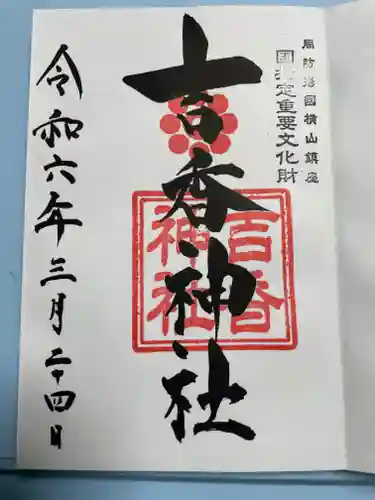 周防岩国横山鎮座
国指定重要文化財
吉香神社
吉香
神社
令和六年三月二十四日